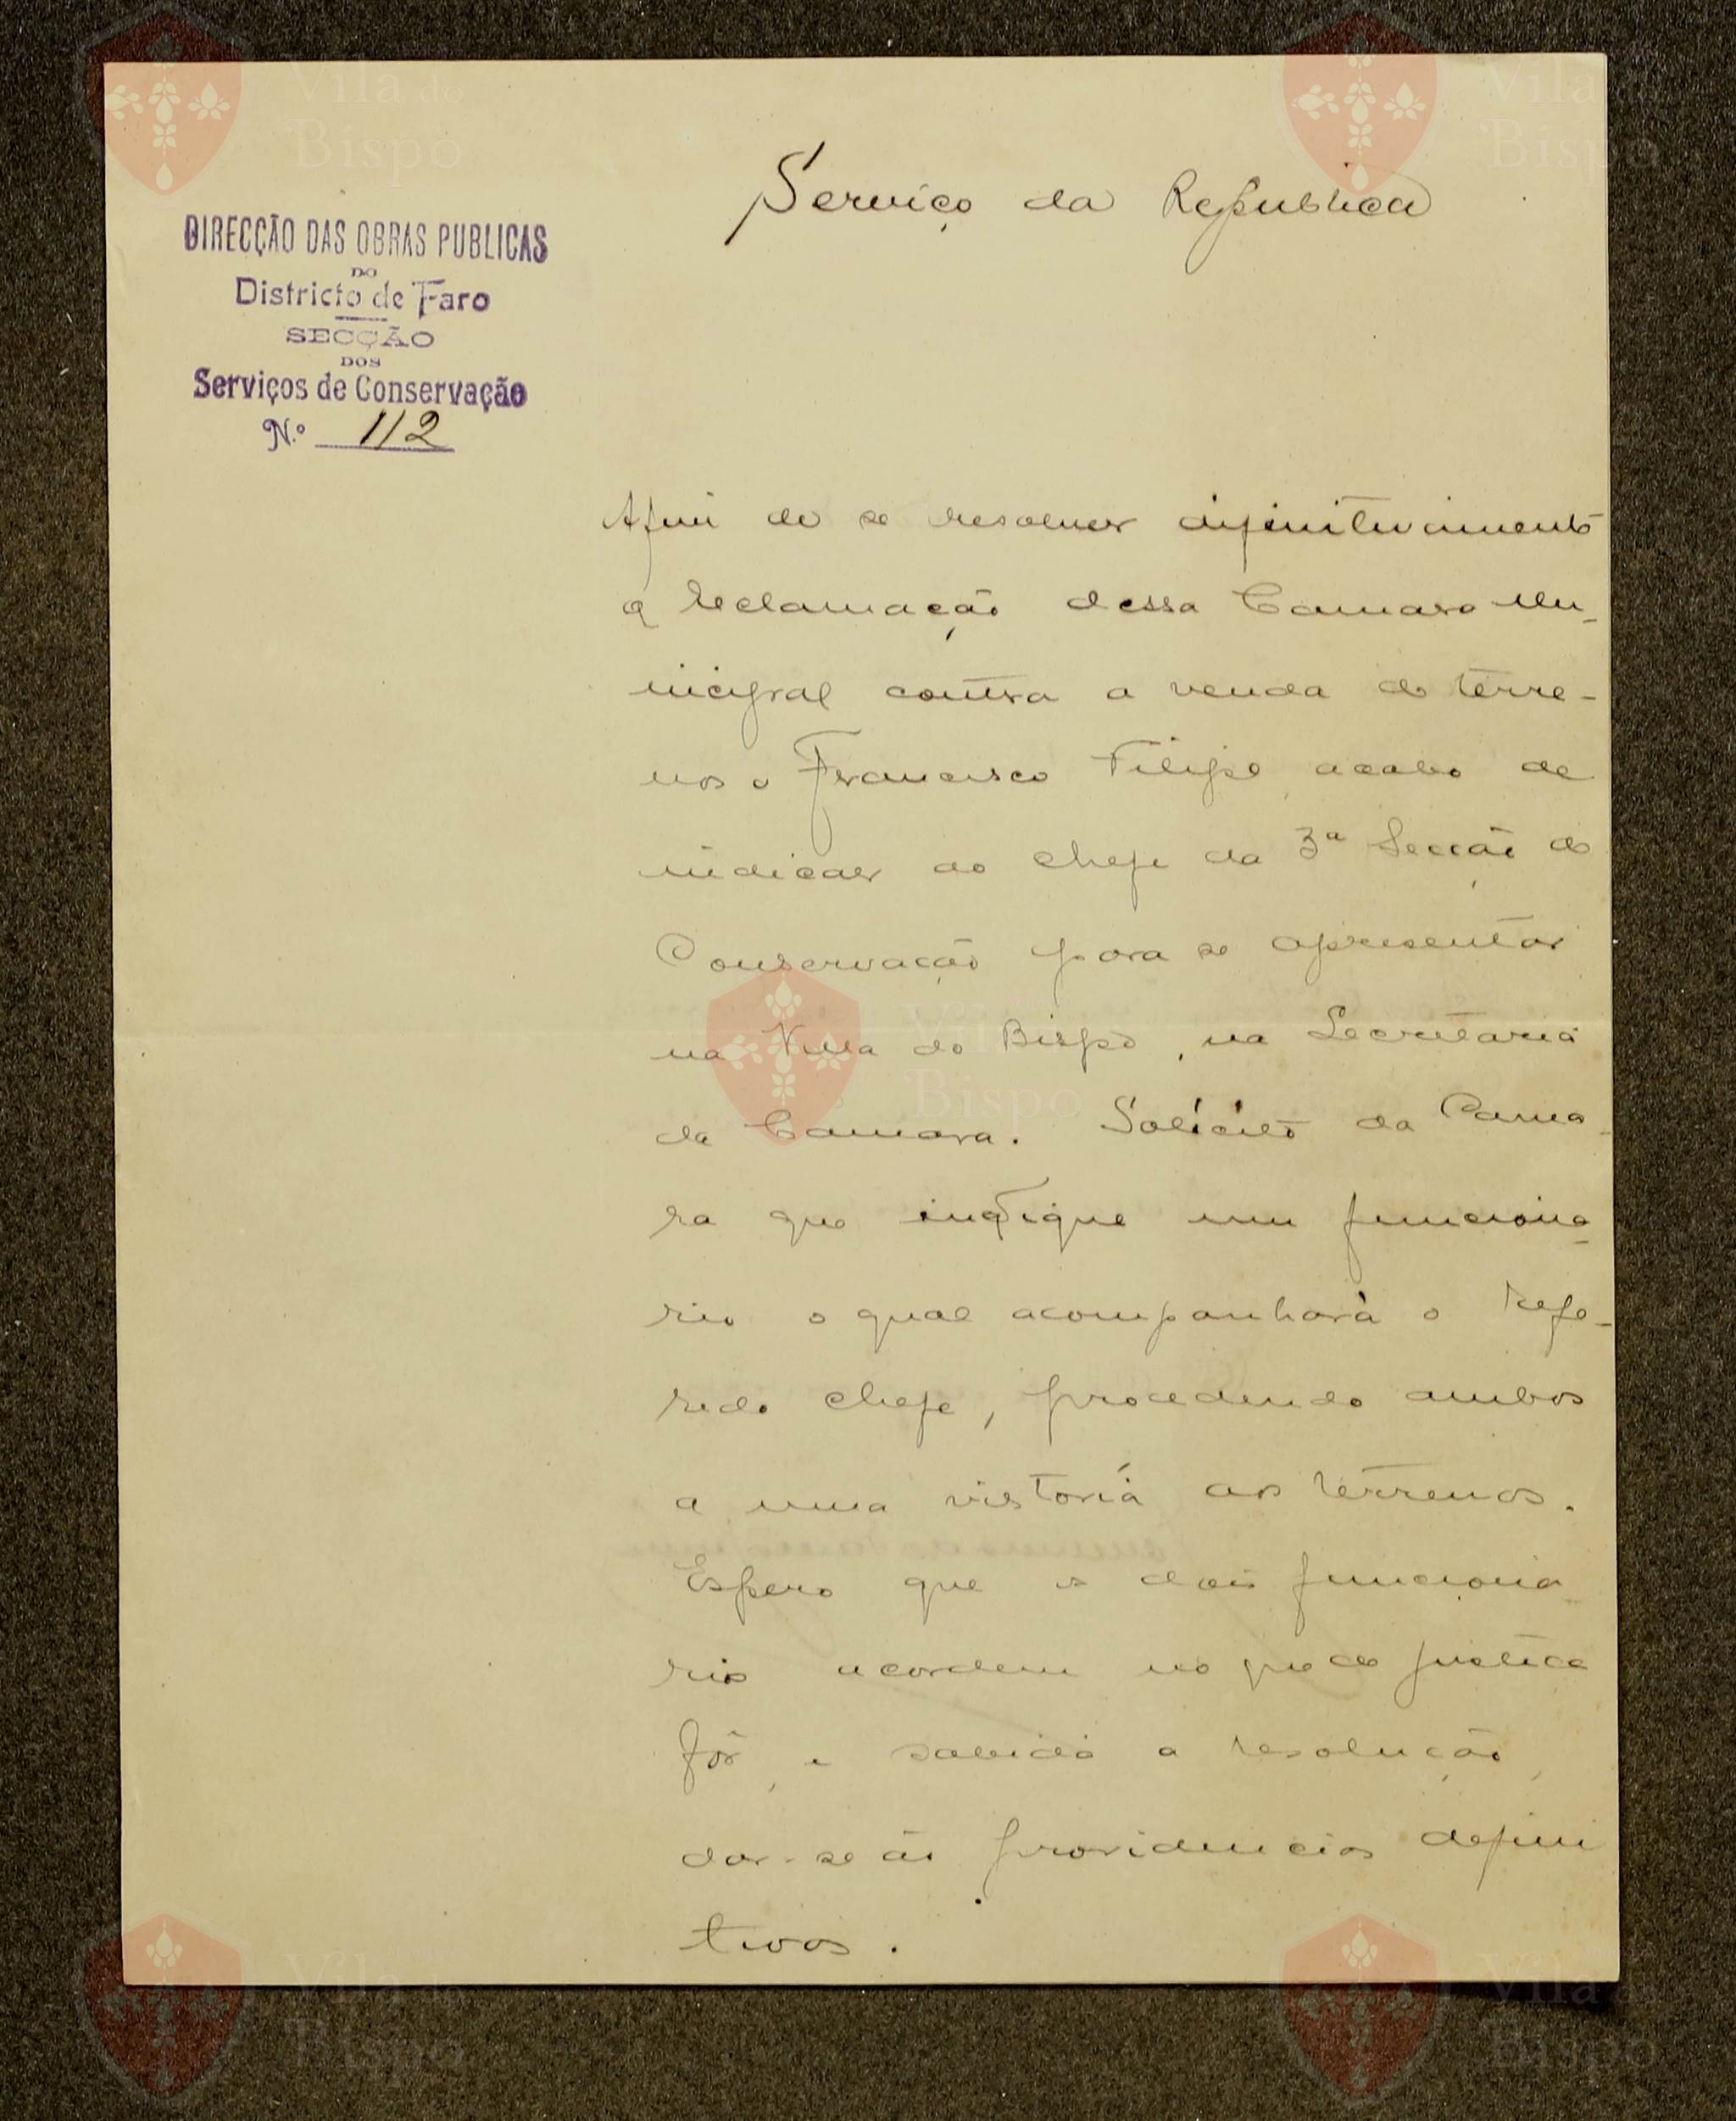 Serviço da Republica
DIRECÇÃO DAS OBRAS PUBLICAS
DO
Districto de Faro
SECÇÃO
DOS
Serviços de Conservação
N.º 112
Afim de se resolver difinitivamente
a reclamação dessa Camara Mu-
nicipal contra a venda de terre-
nos a Francisco Filipe acabo de
indicar ao chefe da 3ª Secção de
Conservação para se apresentar
na Villa do Bispo, na Secretaria
da Camara. Solicito da Cama-
ra que indique um funciona-
rio o qual acompanhará o refe-
rido chefe, procedendo ambos
a uma vistoria aos terrenos.
Espero que os dois funciona-
rios acordem no que de justiça
fôr, e sabida a resolução,
dar-se ão providencias defini
tivas.
Vila do
Bispo
Vila do
Bispo
Vila do
Bispo
Vila do
Bispo
Vila do
Bispo